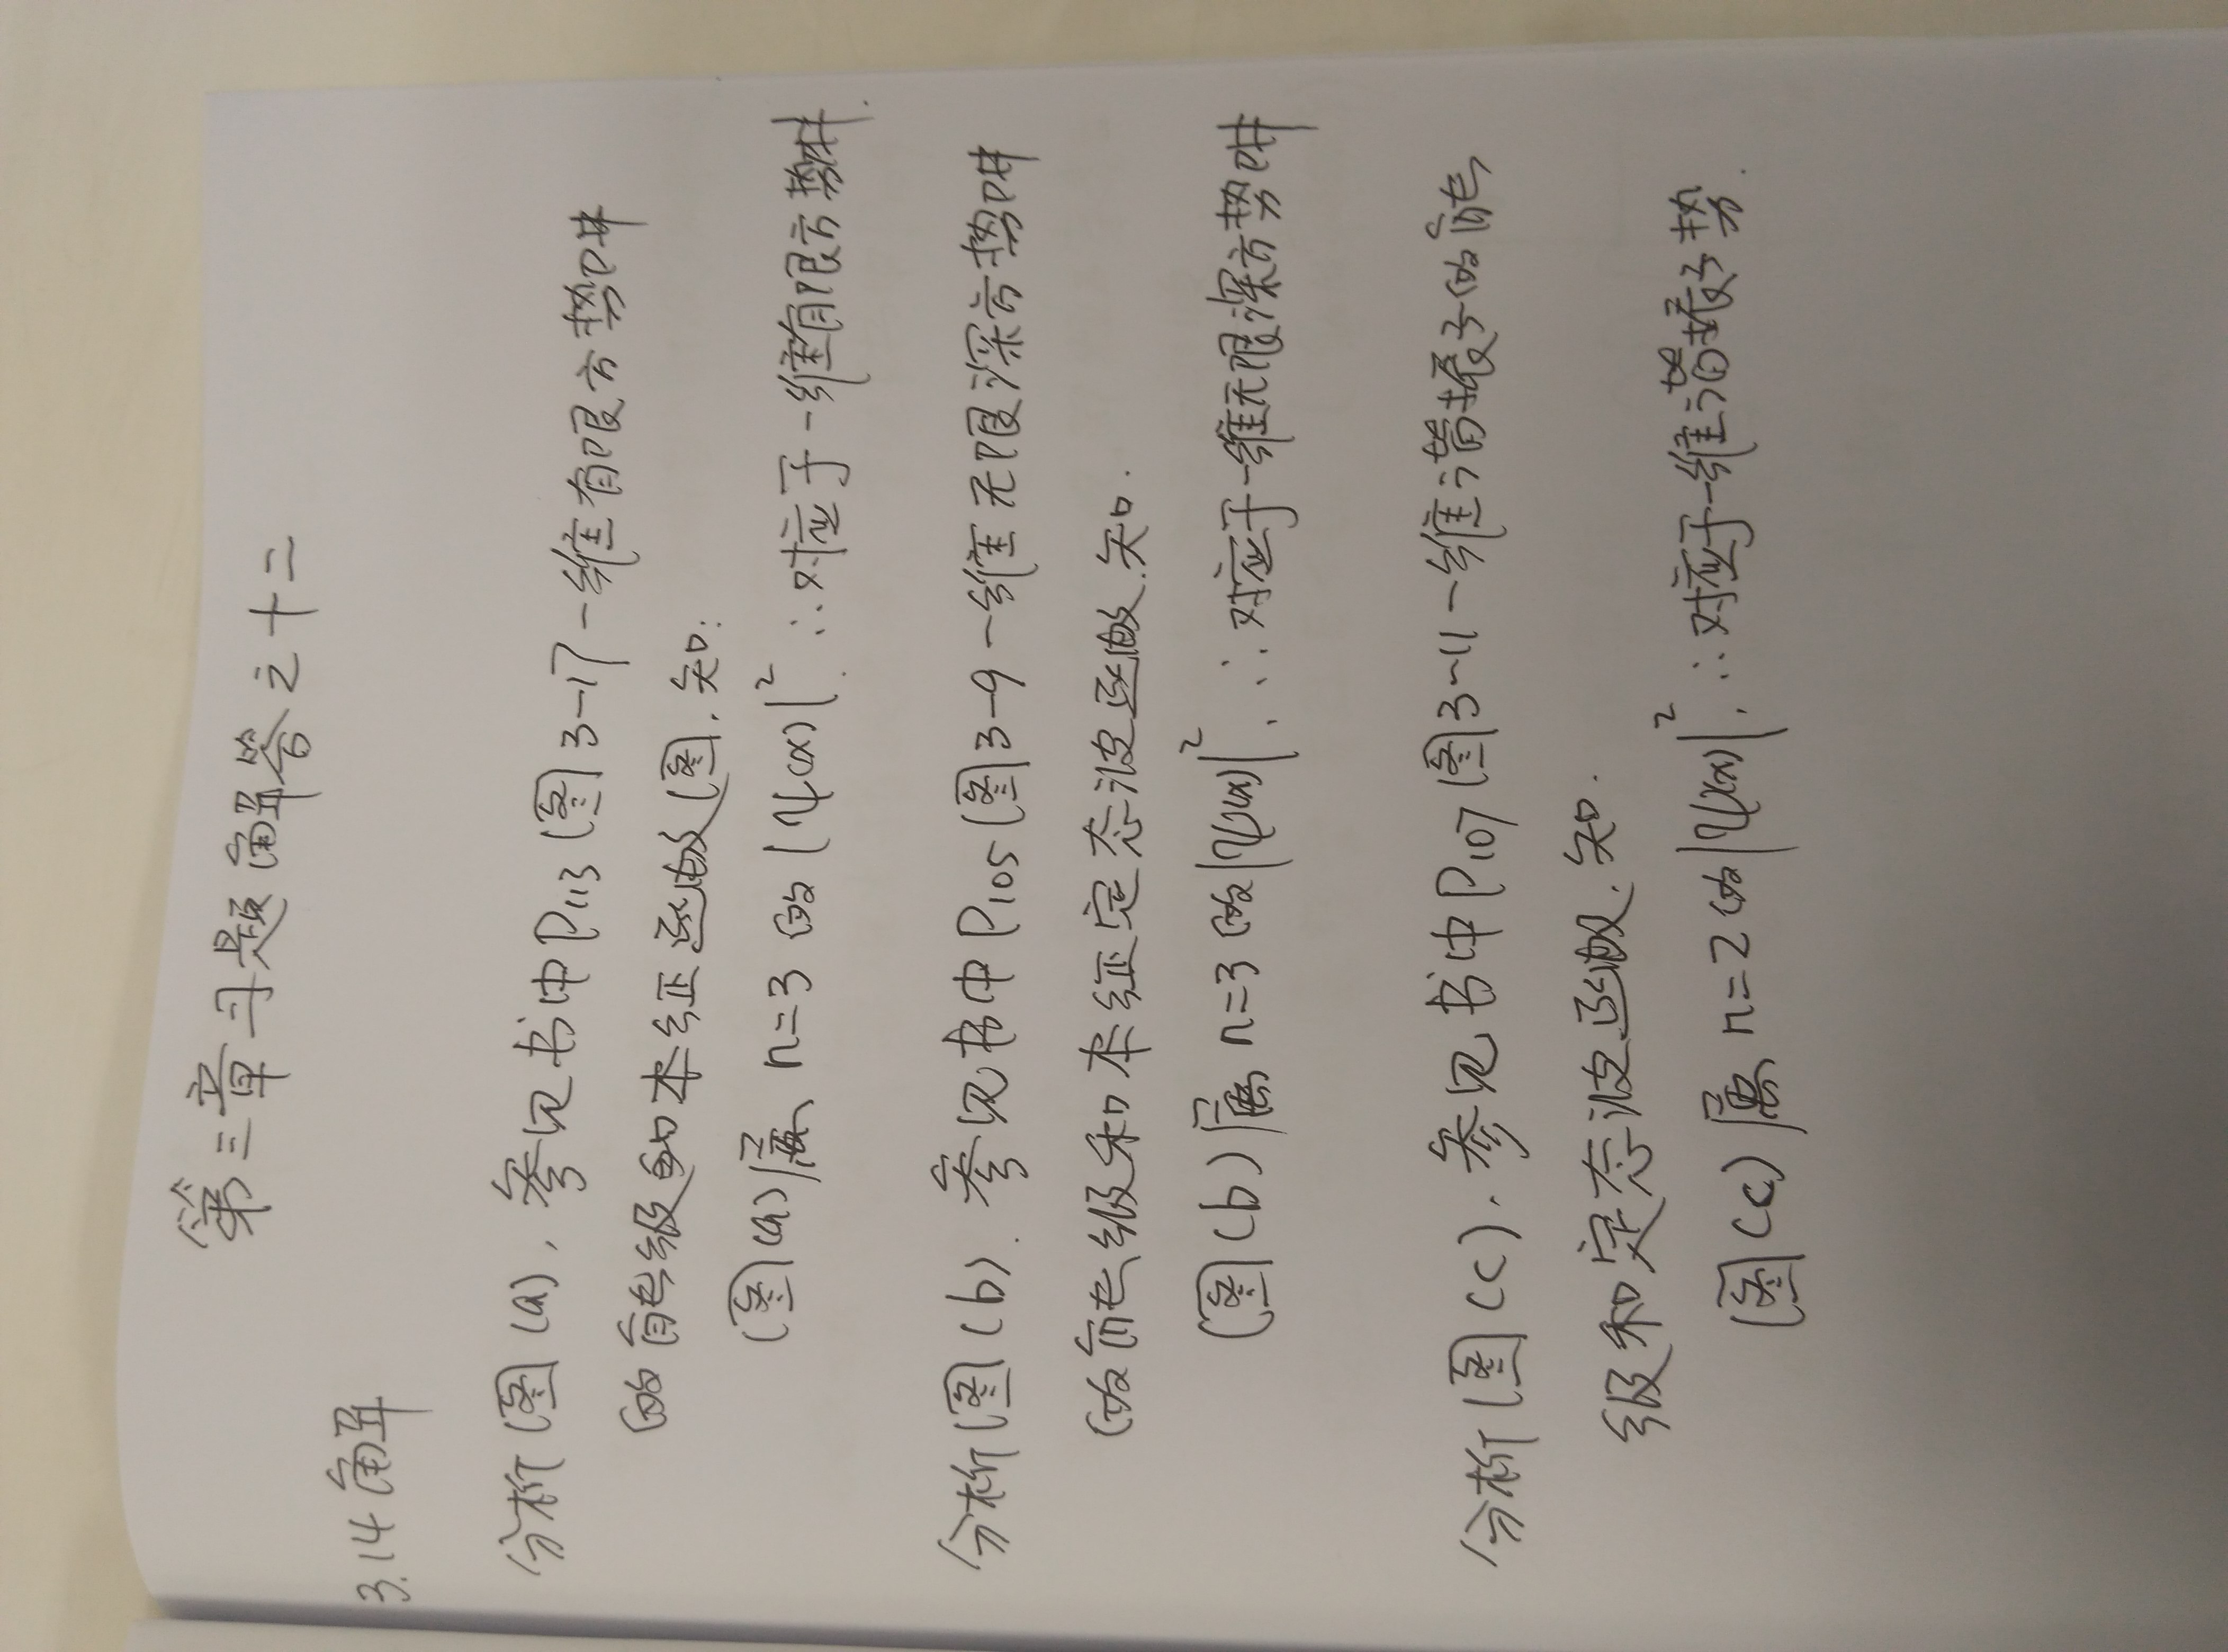 第三章习题解答之十二
3.14 解
分析图(a),参见书中P113图3-17一维有限方势阱
的能级和本征函数图,知:
图(a)属n=3的|ψ(x)|². ∴对应于一维有限方势阱.
分析图(b).参见书中P105图3-9一维无限深方势阱
的能级和本征定态波函数.知.
图(b)属n=3的|ψ(x)|². ∴对应于一维无限深方势阱
分析图(c).参见书中P107图3-11一维谐振子的能
级和定态波函数.知.
图(c)属n=2的|ψ(x)|². ∴对应于一维谐振子势.